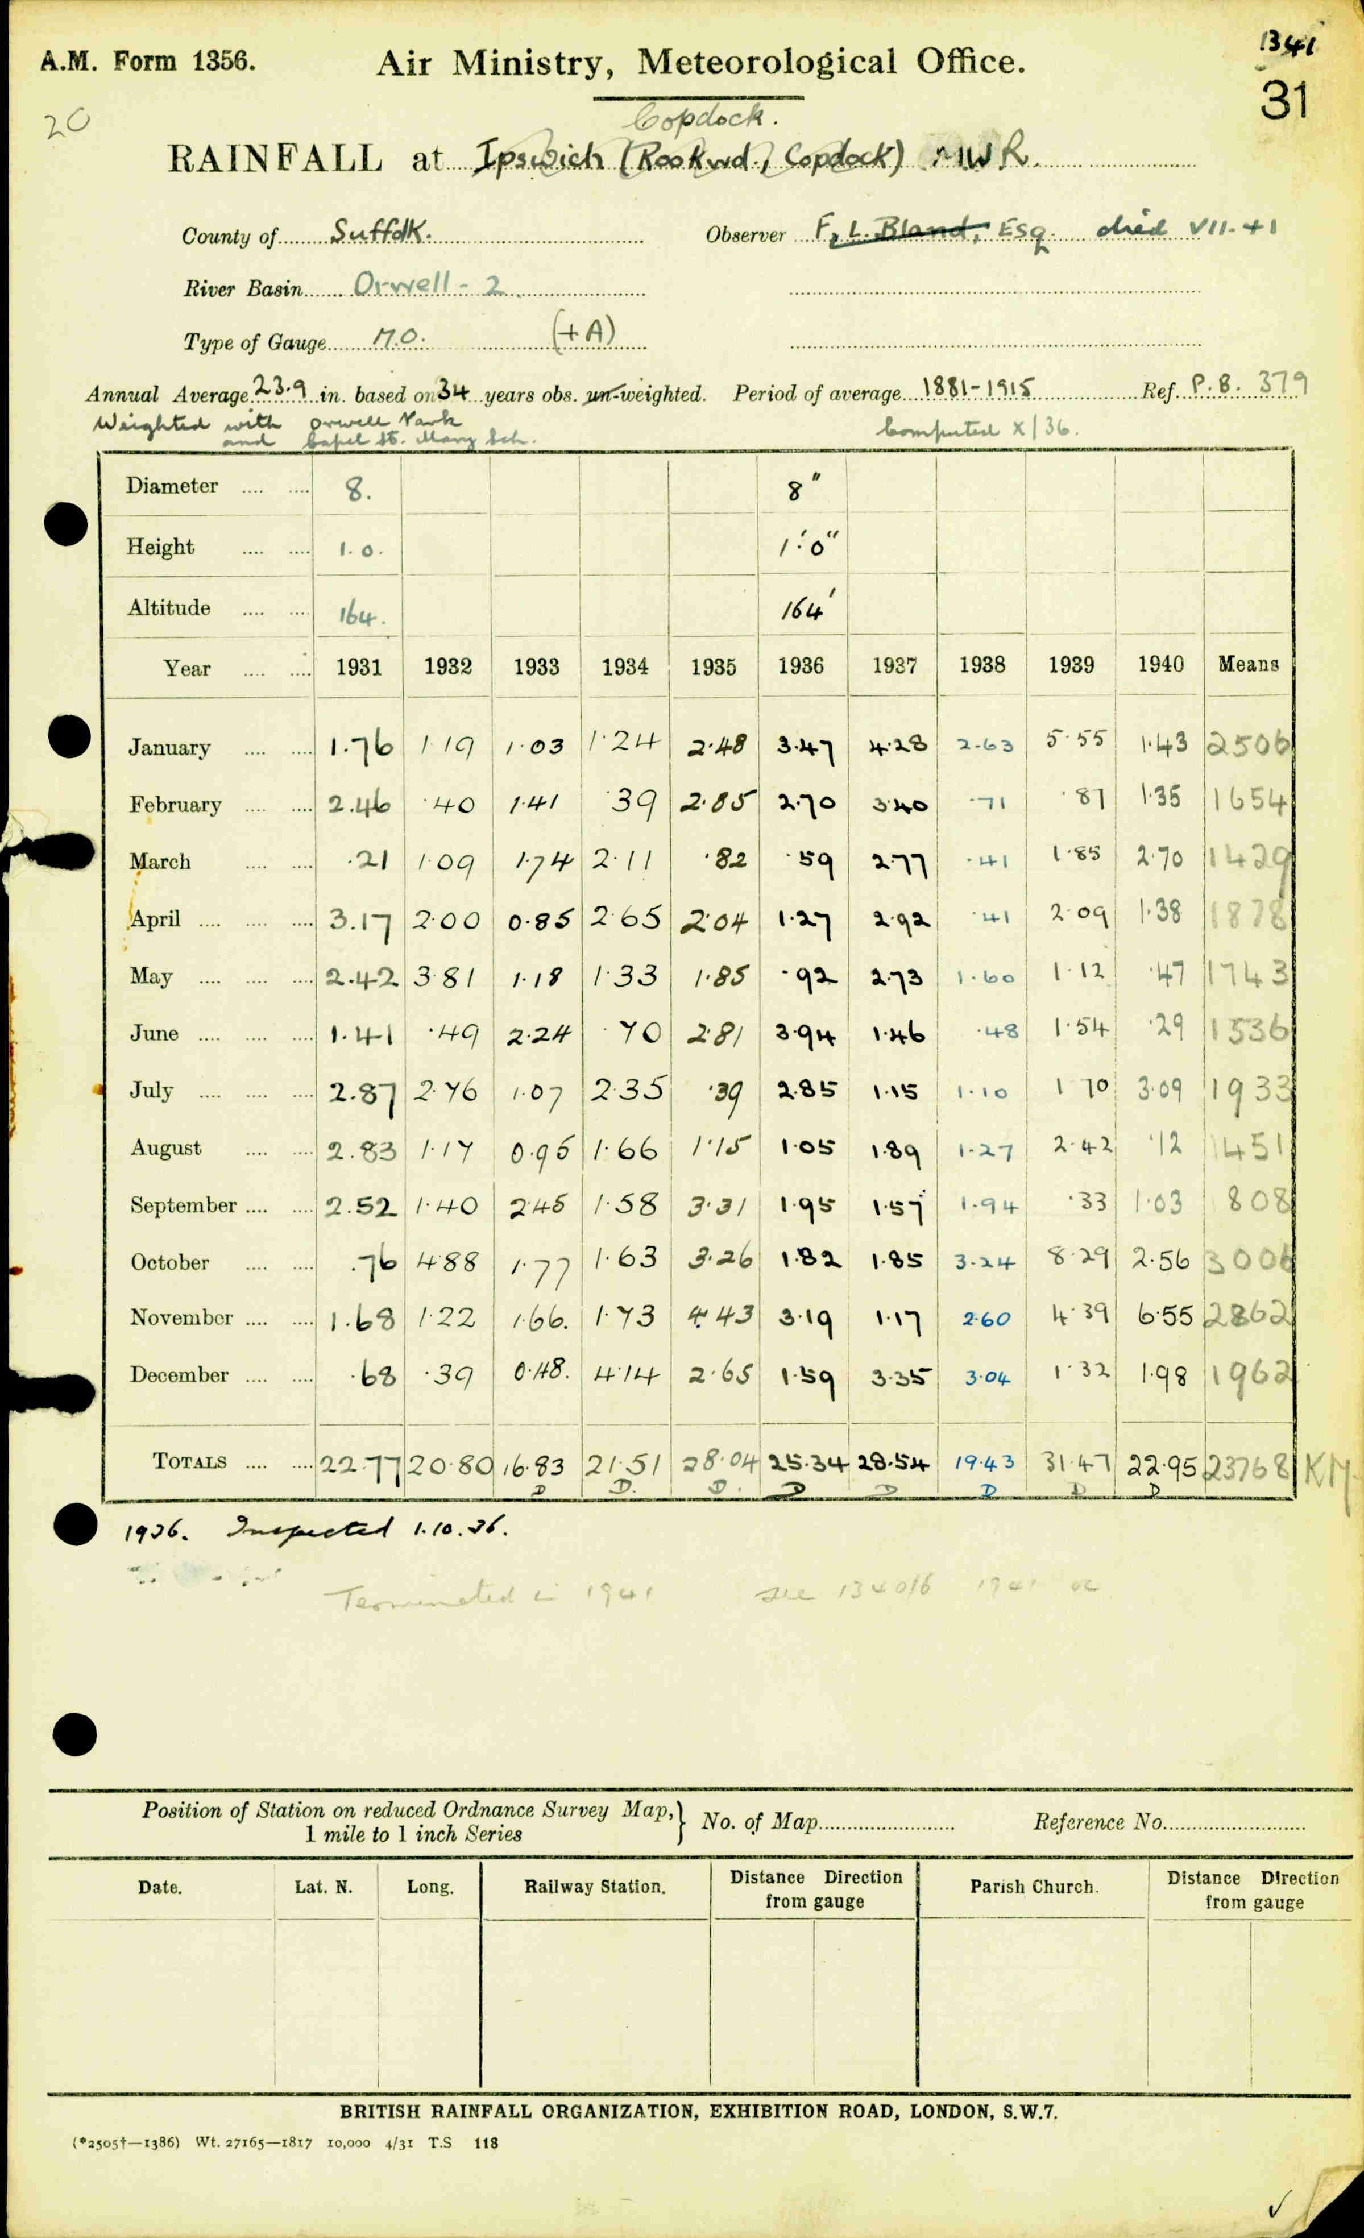 A.M. Form 1356. Air Ministry, Meteorological Office. 1341
31
20
Copdock.
RAINFALL at Ipswich (Rookwd., Copdock) MWR.
County of Suffolk. Observer F. L. Bland, Esq. died VII-41
River Basin Orwell - 2.
Type of Gauge M.O. (+A)
Annual Average 23.9 in. based on 34 years obs. un-weighted. Period of average 1881-1915 Ref. P.B. 379
Weighted with Orwell Park
and Capel St. Mary Sch. Computed X/36.
Diameter .... .... 8. 8"
Height .... .... 1.0. 1'.0"
Altitude .... .... 164. 164'
Year .... .... 1931 1932 1933 1934 1935 1936 1937 1938 1939 1940 Means
January .... .... 1.76 1.19 1.03 1.24 2.48 3.47 4.28 2.63 5.55 1.43 2506
February .... .... 2.46 .40 1.41 .39 2.85 2.70 3.40 .71 .87 1.35 1654
March .... .... .21 1.09 1.74 2.11 .82 .59 2.77 .41 1.85 2.70 1429
April .... .... .... 3.17 2.00 0.85 2.65 2.04 1.27 2.92 .41 2.09 1.38 1878
May .... .... .... 2.42 3.81 1.18 1.33 1.85 .92 2.73 1.60 1.12 .47 1743
June .... .... .... 1.41 .49 2.24 .70 2.81 3.94 1.46 .48 1.54 .29 1536
July .... .... .... 2.87 2.76 1.07 2.35 .39 2.85 1.15 1.10 1 70 3.09 1933
August .... .... 2.83 1.17 0.95 1.66 1.15 1.05 1.89 1.27 2.42 .12 1451
September .... .... 2.52 1.40 2.45 1.58 3.31 1.95 1.57 1.94 .33 1.03 808
October .... .... .76 4.88 1.77 1.63 3.26 1.82 1.85 3.24 8.29 2.56 3006
November .... .... 1.68 1.22 1.66. 1.73 4.43 3.19 1.17 2.60 4.39 6.55 2862
December .... .... .68 .39 0.48. 4.14 2.65 1.59 3.35 3.04 1.32 1.98 1962
TOTALS .... .... 22.77 20.80 16.83 21.51 28.04 25.34 28.54 19.43 31.47 22.95 23768 KM
D D. D. D D D D D
1936. Inspected 1.10.36.
Terminated in 1941 see 1340/6 1941
Position of Station on reduced Ordnance Survey Map,} No. of Map Reference No.
1 mile to 1 inch Series
Date. Lat. N. Long. Railway Station. Distance Direction from gauge Parish Church. Distance Direction from gauge
BRITISH RAINFALL ORGANIZATION, EXHIBITION ROAD, LONDON, S.W.7.
(*2505†—1386) Wt. 27165—1817 10,000 4/31 T.S 118